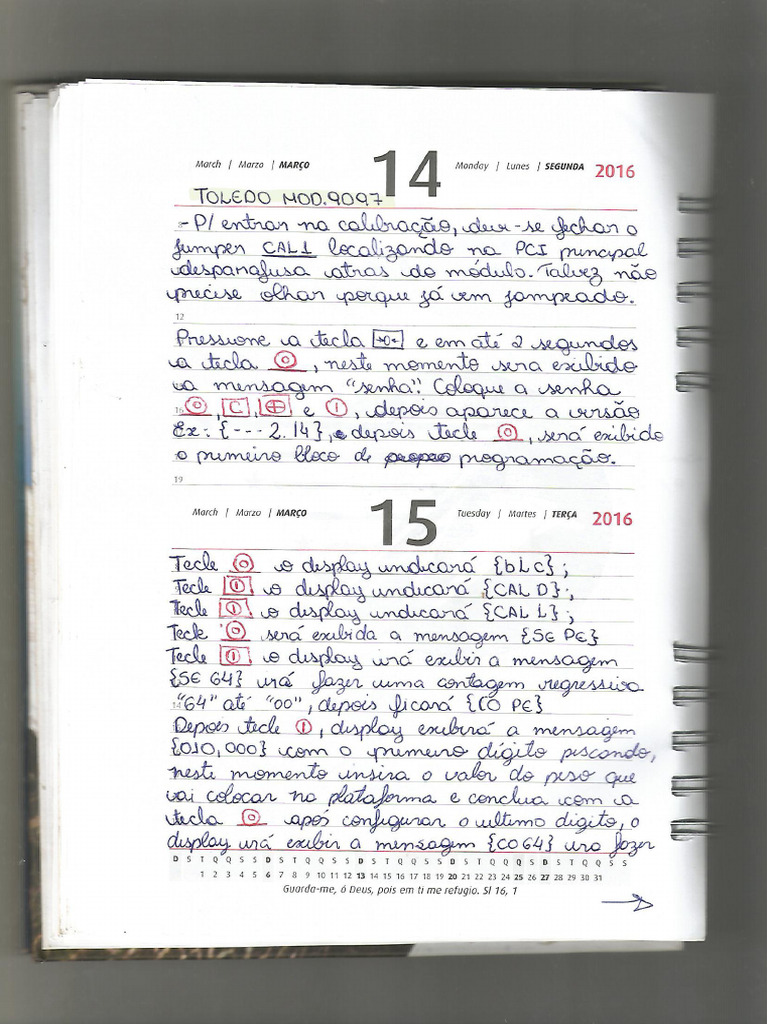 March | Marzo | MARÇO 14 Monday | Lunes | SEGUNDA 2016
TOLEDO MOD.9097
- P/ entrar na calibração, deve-se fechar o
jumper CAL1 localizando na PCI principal
desparafusa atras do módulo. Talvez não
precise olhar porque já vem jampeado.
12
Pressione a tecla →0← e em até 2 segundos
a tecla ⊙, neste momento sera exibido
a mensagem "senha". Coloque a senha
16 ⊙, C, ⊕ e ①, depois aparece a versão
Ex: {--- 2.14}, e depois tecle ⊙, será exibido
o primeiro bloco de programação.
19
March | Marzo | MARÇO 15 Tuesday | Martes | TERÇA 2016
Tecle ⊙ o display indicará {bLc};
Tecle ① o display indicará {CAL D};
Tecle ① o display indicará {CAL L};
Tecle ⊙ será exibida a mensagem {SE PE}
Tecle ① o display irá exibir a mensagem
{SE 64} irá fazer uma contagem regressiva
14 "64" até "00", depois ficará {CO PE}
Depois tecle ①, display exibirá a mensagem
{010,000} com o primeiro dígito piscando,
neste momento insira o valor do peso que
vai colocar na plataforma e conclua com a
tecla ⊙ após configurar o ultimo digito, o
display irá exibir a mensagem {CO64} ira fazer
D S T Q Q S S D S T Q Q S S D S T Q Q S S D S T Q Q S D S T Q Q S S
1 2 3 4 5 6 7 8 9 10 11 12 13 14 15 16 17 18 19 20 21 22 23 24 25 26 27 28 29 30 31
Guarda-me, ó Deus, pois em ti me refugio. Sl 16, 1